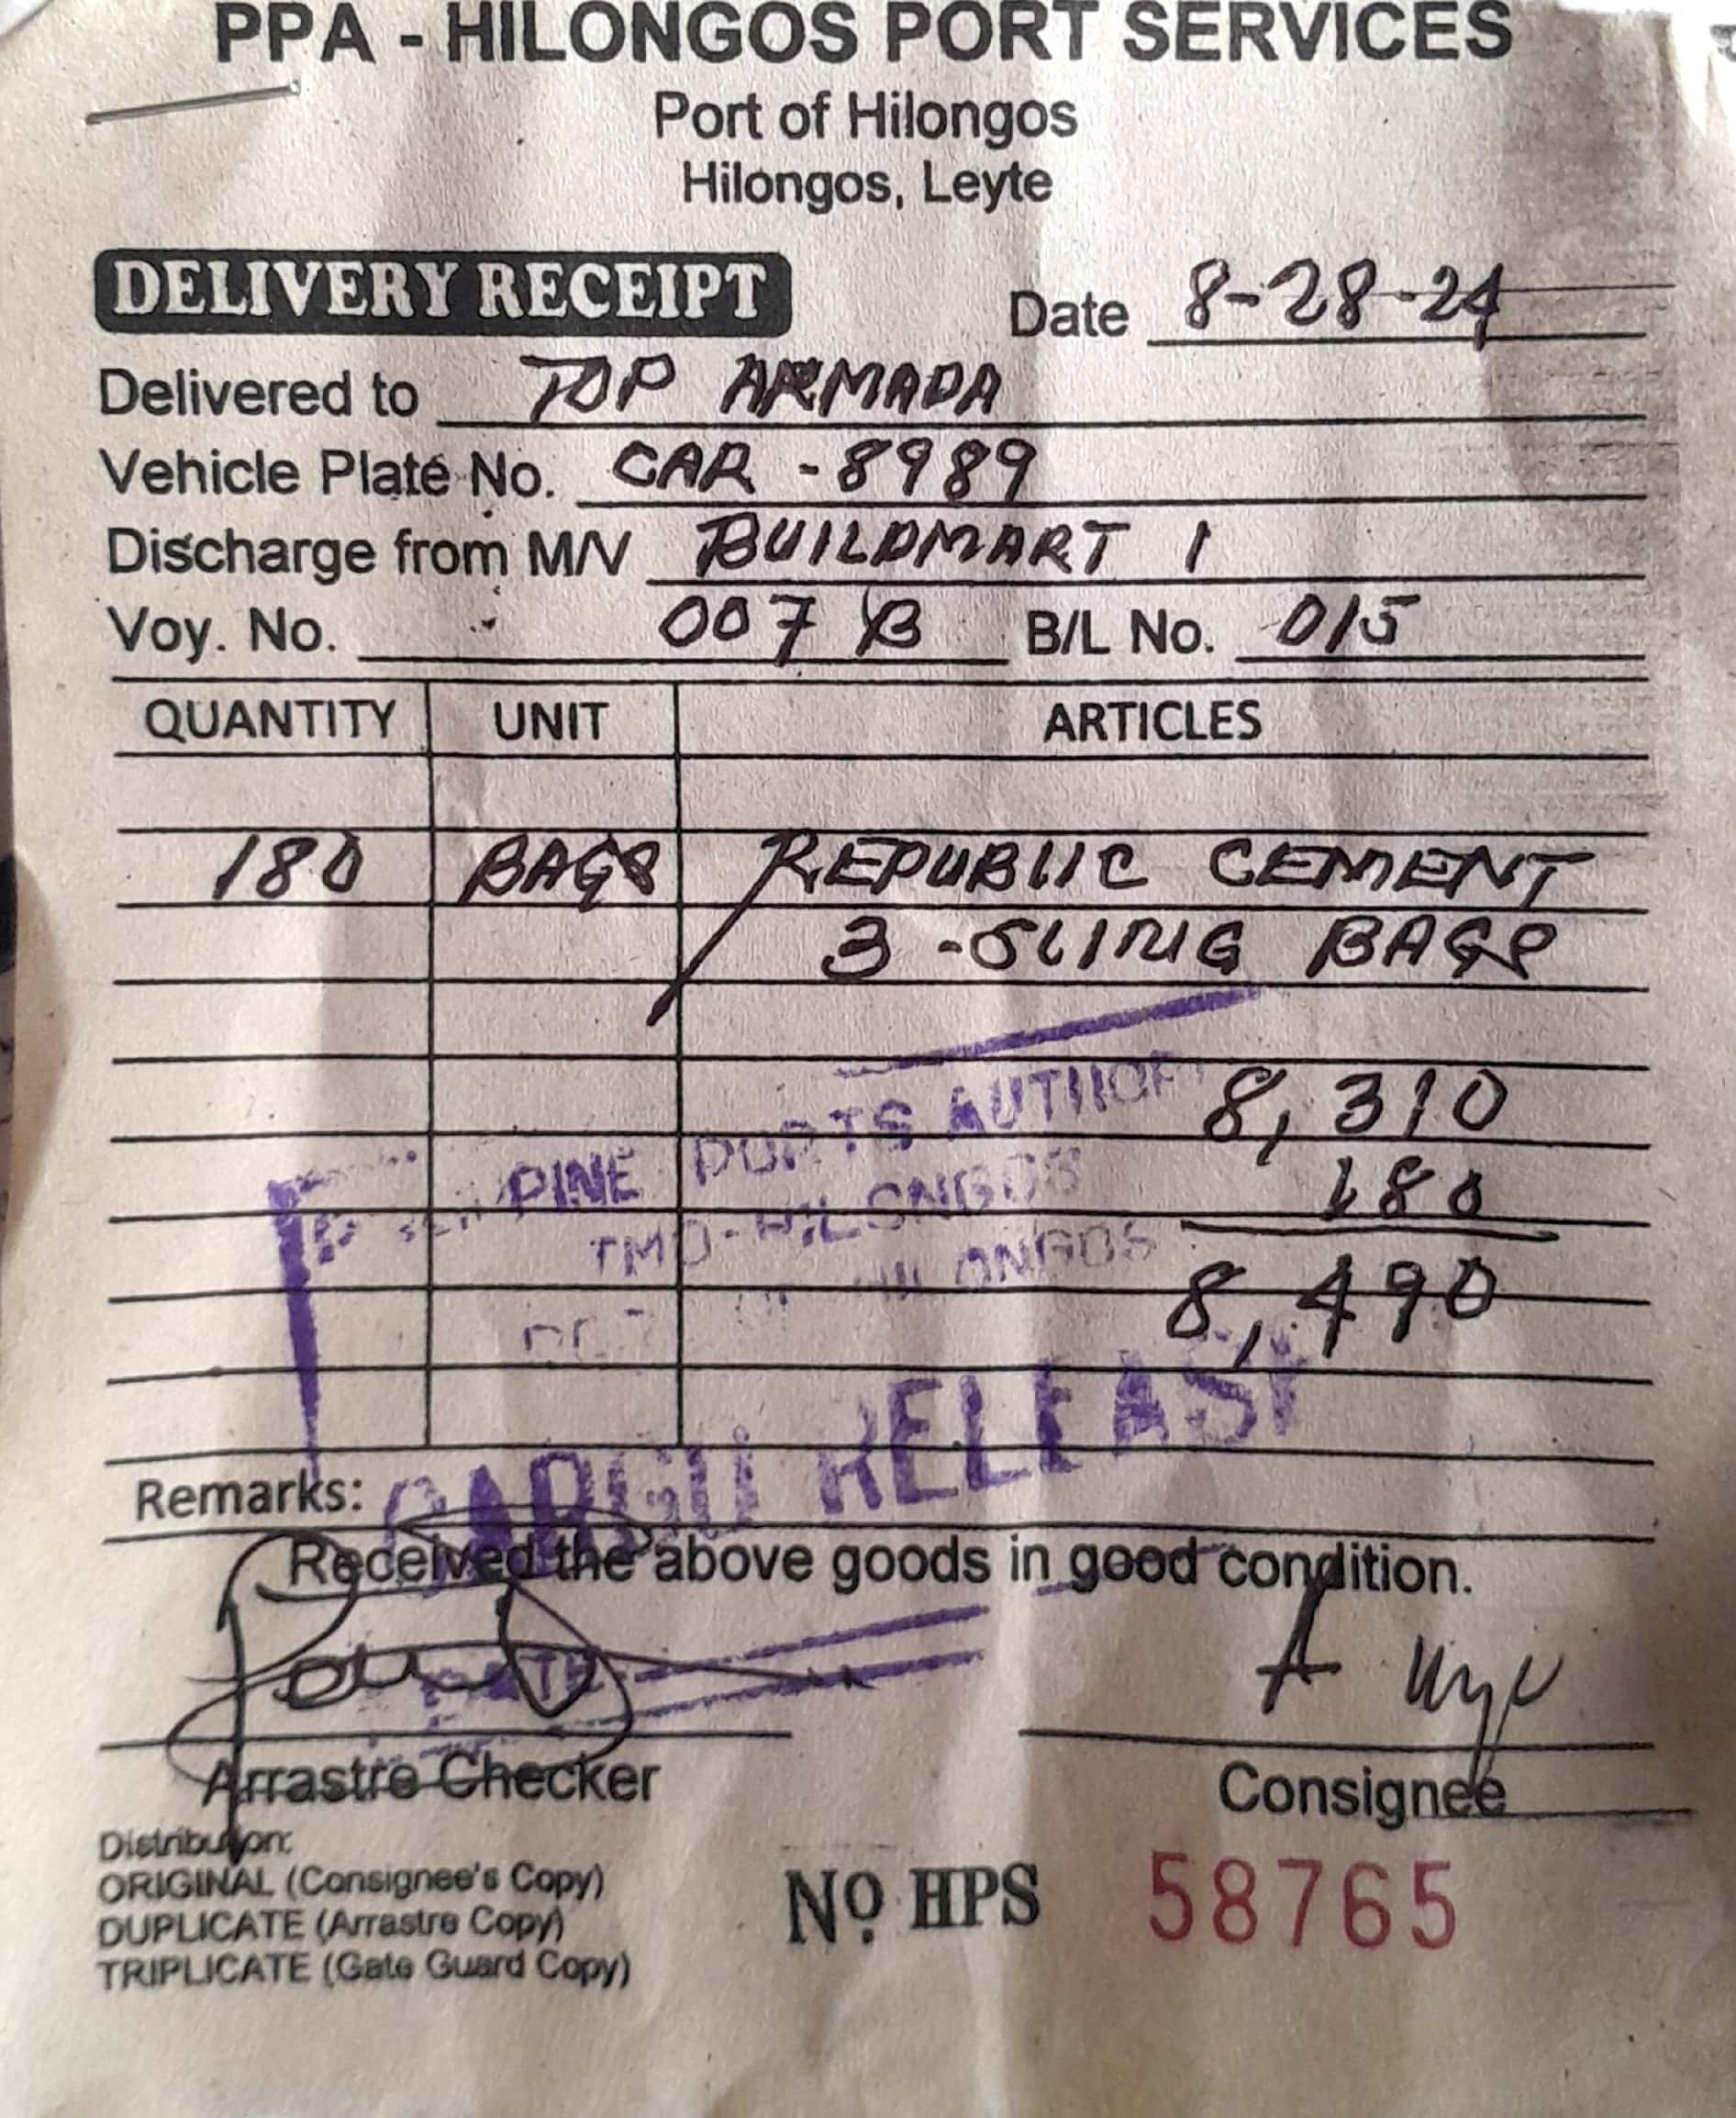 PPA - HILONGOS PORT SERVICES
Port of Hilongos
Hilongos, Leyte
DELIVERY RECEIPT Date 8-28-24
Delivered to TOP ARMADA
Vehicle Plate No. CAR - 8989
Discharge from M/V BUILDMART 1
Voy. No. 007 B B/L No. 015
QUANTITY UNIT ARTICLES
180 BAGS REPUBLIC CEMENT
3 - SLING BAGS
8,310
PINE PORTS
180
TMO-HILONGOS
8,490
HILONGOS
CARGO RELEASE
Remarks:
Received the above goods in good condition.
DATE
A
Arrastre Checker Consignee
Distribution:
ORIGINAL (Consignee's Copy)
DUPLICATE (Arrastre Copy)
TRIPLICATE (Gate Guard Copy)
No. HPS 58765